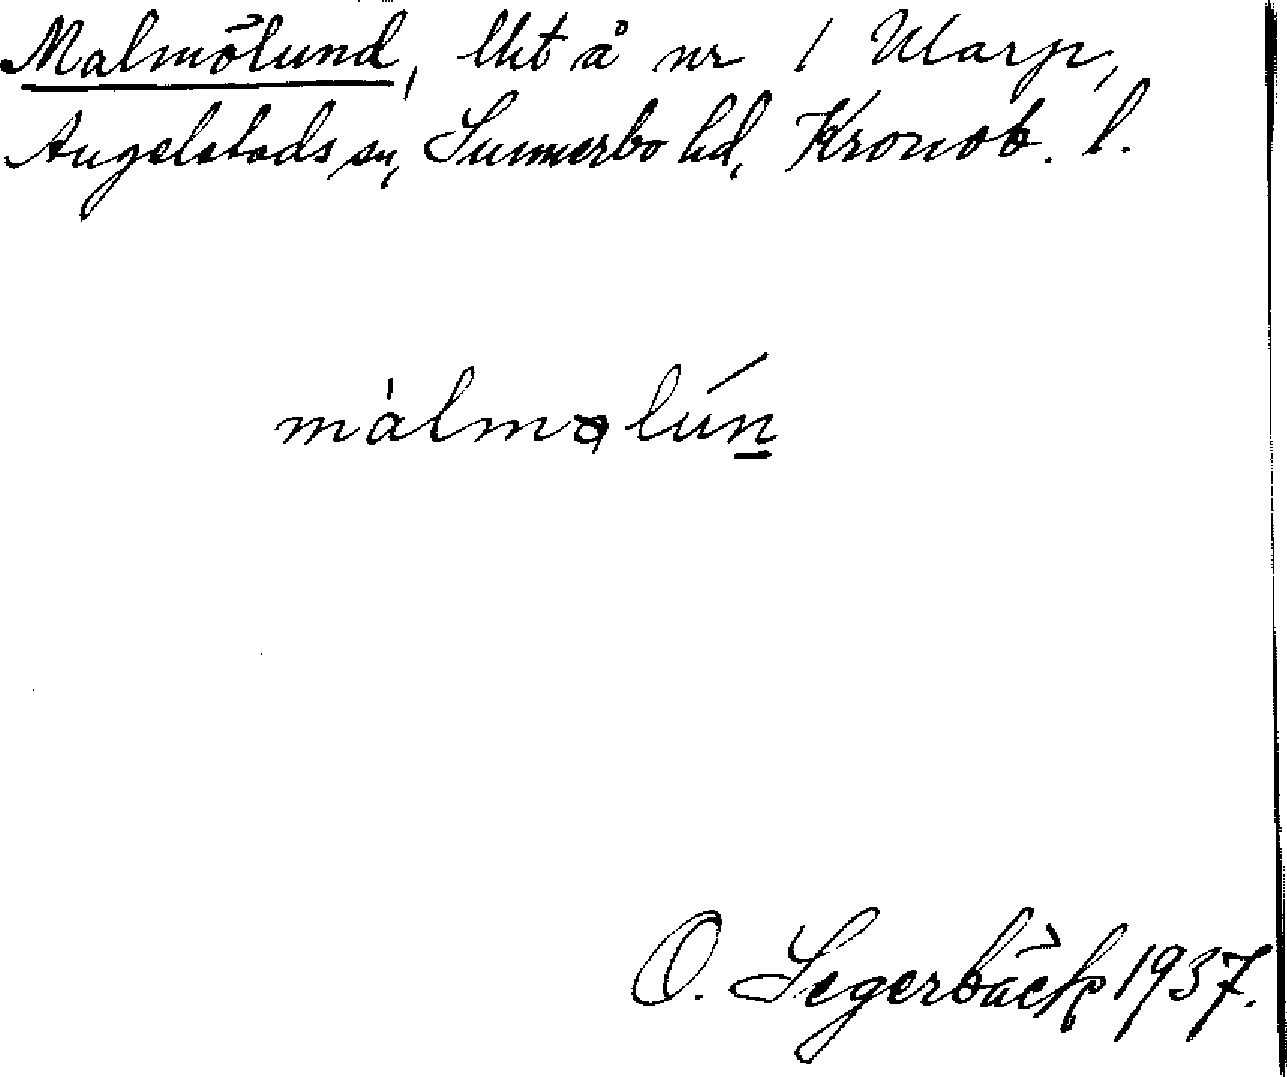 Malmölund, lht å nr 1 Ularp,
Angelstads sn, Sunnerbo hd, Kronob. l.
màlmɷlún̲
O. Segerbäck 1937.